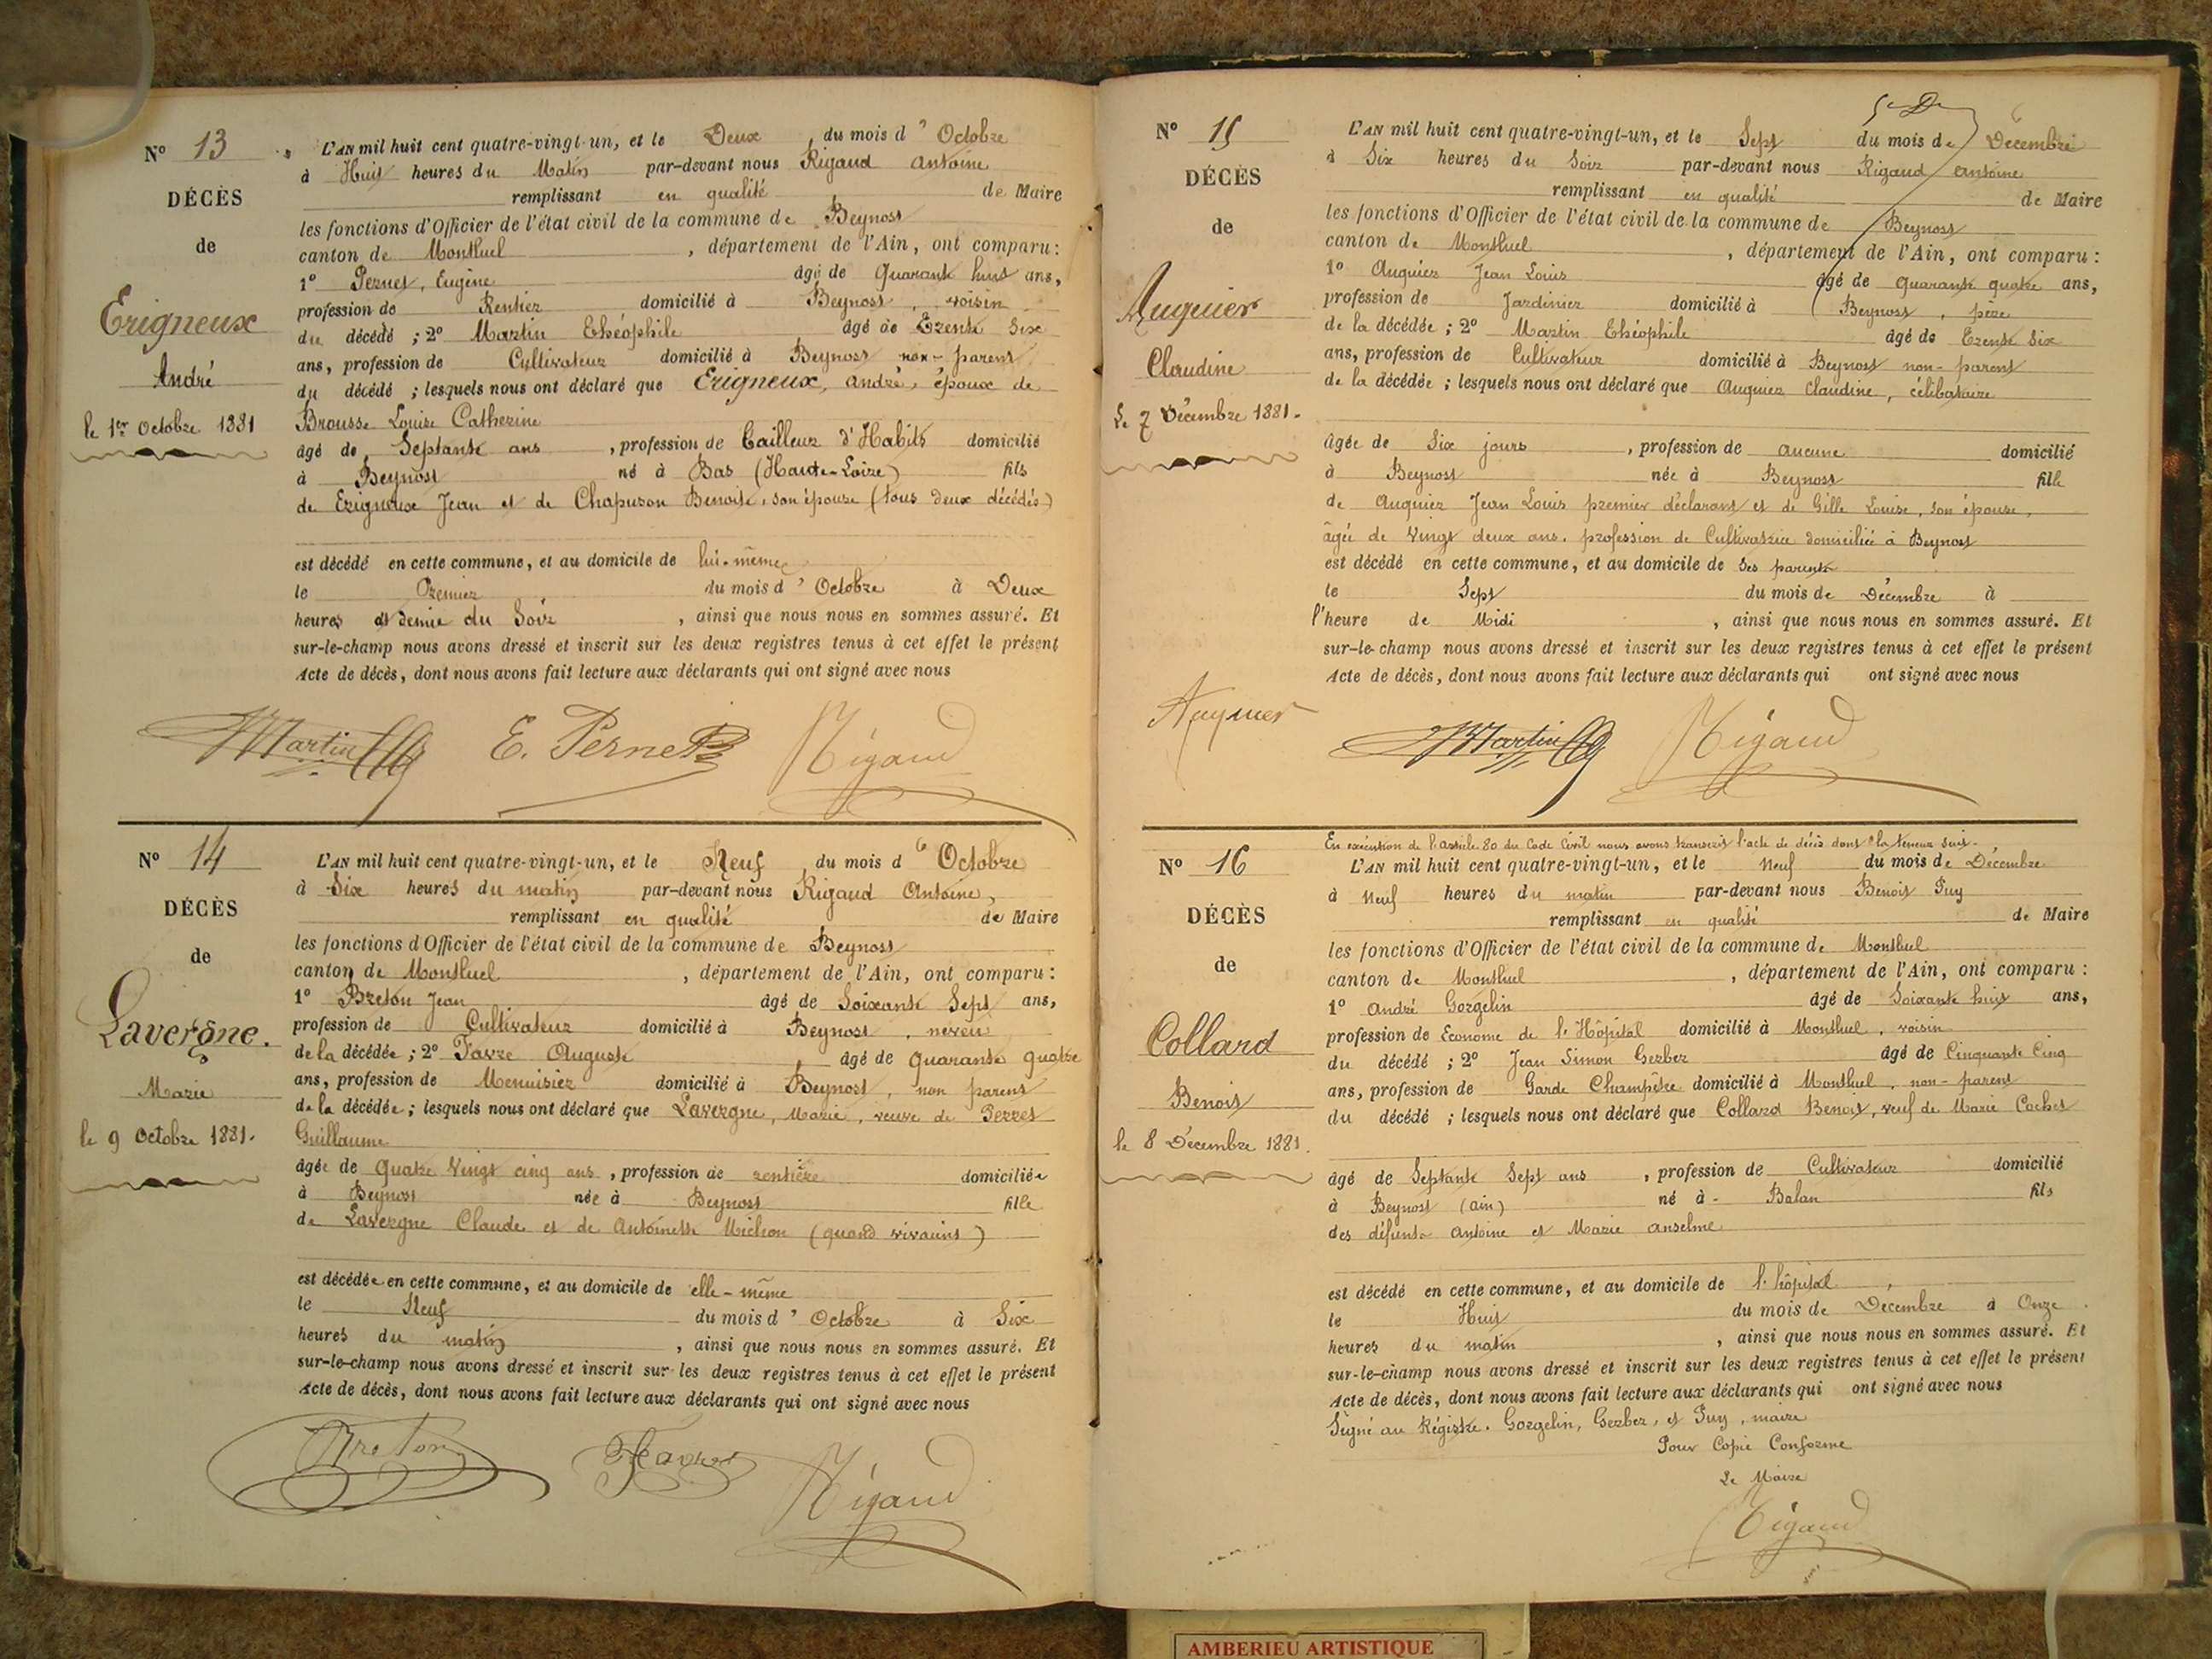 N° 13
DÉCÈS
de
Erigneux
André
le 1er Octobre 1881
L'AN mil huit cent quatre-vingt-un, et le Deux du mois d'Octobre
à Huit heures du Matin par-devant nous Rigaud Antoine
remplissant en qualité de Maire
les fonctions d'Officier de l'état civil de la commune de Beynost
canton de Montluel, département de l'Ain, ont comparu:
1° Pernet, Eugène âgé de Quarante huit ans,
profession de Rentier domicilié à Beynost, voisin
du décédé; 2° Martin Théophile âgé de Trente Six
ans, profession de Cultivateur domicilié à Beynost non-parent
du décédé; lesquels nous ont déclaré que Erigneux, André, époux de
Brousse Louise Catherine
âgé de Septante ans, profession de Tailleur d'Habits domicilié
à Beynost né à Bas (Haute-Loire) fils
de Erigneux Jean et de Chapuzon Benoite, son épouse (tous deux décédés)
est décédé en cette commune, et au domicile de lui-même
le Premier du mois d'Octobre à Deux
heures et demie du Soir, ainsi que nous nous en sommes assuré. Et
sur-le-champ nous avons dressé et inscrit sur les deux registres tenus à cet effet le présent
Acte de décès, dont nous avons fait lecture aux déclarants qui ont signé avec nous
Martin E. Pernet Rigaud
N° 14
DÉCÈS
de
Lavergne.
Marie
le 9 Octobre 1881.
L'AN mil huit cent quatre-vingt-un, et le Neuf du mois d'Octobre
à Six heures du matin par-devant nous Rigaud Antoine,
remplissant en qualité de Maire
les fonctions d'Officier de l'état civil de la commune de Beynost
canton de Montluel, département de l'Ain, ont comparu:
1° Breton Jean âgé de Soixante Sept ans,
profession de Cultivateur domicilié à Beynost, neveu
de la décédée; 2° Favre Auguste âgé de Quarante quatre
ans, profession de Menuisier domicilié à Beynost, non parent
de la décédée; lesquels nous ont déclaré que Lavergne, Marie, veuve de Perret
Guillaume
âgée de Quatre Vingt cinq ans, profession de rentière domiciliée
à Beynost née à Beynost fille
de Lavergne Claude et de Antoinette Michon (quand vivaient)
est décédée en cette commune, et au domicile de elle-même
le Neuf du mois d'Octobre à Six
heures du matin, ainsi que nous nous en sommes assuré. Et
sur-le-champ nous avons dressé et inscrit sur les deux registres tenus à cet effet le présent
Acte de décès, dont nous avons fait lecture aux déclarants qui ont signé avec nous
Breton Favre Rigaud
N° 15
DÉCÈS
de
Auguier
Claudine
Le 7 Décembre 1881.
L'AN mil huit cent quatre-vingt-un, et le Sept du mois de Décembre
à Six heures du Soir par-devant nous Rigaud Antoine
remplissant en qualité de Maire
les fonctions d'Officier de l'état civil de la commune de Beynost
canton de Montluel, département de l'Ain, ont comparu:
1° Auguier Jean Louis âgé de quarante quatre ans,
profession de Jardinier domicilié à Beynost, père
de la décédée; 2° Martin Théophile âgé de Trente Six
ans, profession de Cultivateur domicilié à Beynost non-parent
de la décédée; lesquels nous ont déclaré que Auguier Claudine, célibataire
âgée de Six jours, profession de aucune domicilié
à Beynost née à Beynost fille
de Auguier Jean Louis premier déclarant et de Gille Louise, son épouse,
âgée de Vingt deux ans. profession de Cultivatrice domiciliée à Beynost
est décédé en cette commune, et au domicile de Ses parents
le Sept du mois de Décembre à
l'heure de Midi, ainsi que nous nous en sommes assuré. Et
sur-le-champ nous avons dressé et inscrit sur les deux registres tenus à cet effet le présent
Acte de décès, dont nous avons fait lecture aux déclarants qui ont signé avec nous
Auguier Martin Rigaud
N° 16
DÉCÈS
de
Collard
Benoit
le 8 Décembre 1881.
En exécution de l'article 80 du Code Civil nous avons transcrit l'acte de décès dont la teneur suit.
L'AN mil huit cent quatre-vingt-un, et le Neuf du mois de Décembre
à Neuf heures du matin par-devant nous Benoit Puy
remplissant en qualité de Maire
les fonctions d'Officier de l'état civil de la commune de Montluel
canton de Montluel, département de l'Ain, ont comparu:
1° André Gorgelin âgé de Soixante huit ans,
profession de Econome de l'Hôpital domicilié à Montluel, voisin
du décédé; 2° Jean Simon Gerber âgé de Cinquante Cinq
ans, profession de Garde Champêtre domicilié à Montluel, non-parent
du décédé; lesquels nous ont déclaré que Collard Benoit, veuf de Marie Cochet
âgé de Septante Sept ans, profession de Cultivateur domicilié
à Beynost (ain) né à Balan fils
des défunts Antoine et Marie Anselme
est décédé en cette commune, et au domicile de l'hôpital,
le Huit du mois de Décembre à Onze
heures du matin, ainsi que nous nous en sommes assuré. Et
sur-le-champ nous avons dressé et inscrit sur les deux registres tenus à cet effet le présent
Acte de décès, dont nous avons fait lecture aux déclarants qui ont signé avec nous
Signé au Régistre. Gorgelin, Gerber, et Puy, maire
Pour Copie Conforme
Le Maire
Rigaud
AMBERIEU ARTISTIQUE